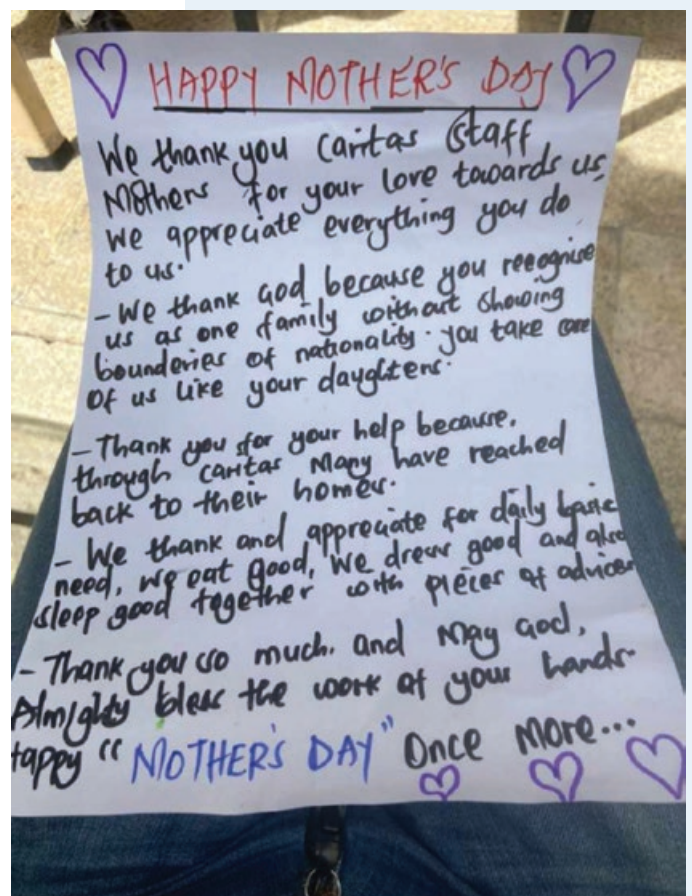 HAPPY MOTHER'S DAY
We thank you Caritas Staff
Mothers for your love towards us,
we appreciate everything you do
to us.
- We thank God because you reeognise
us as one family without showing
bounderies of nationality. you take care
of us like your daughters.
- Thank you for your help because,
through caritas Many have reached
back to their homes.
- We thank and appreciate for daily basic
need, we eat good, we dress good and also
sleep good together with pieces of advices
- Thank you so much. and May God,
Almighty bless the work of your hands.
Happy "MOTHER'S DAY" Once More...